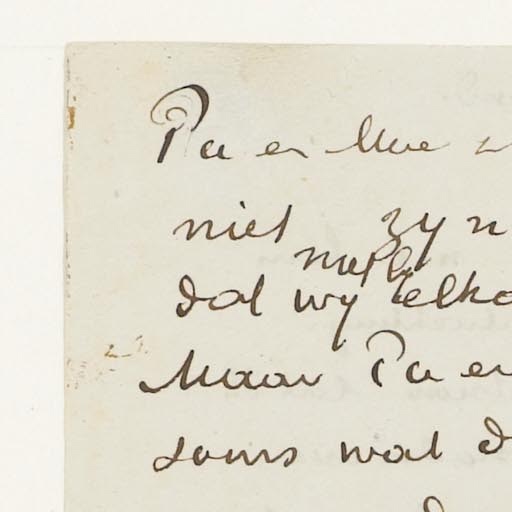 Pa en Moe
niet zyn
niet
dat wy elko
Maar Pa en
soms wat d